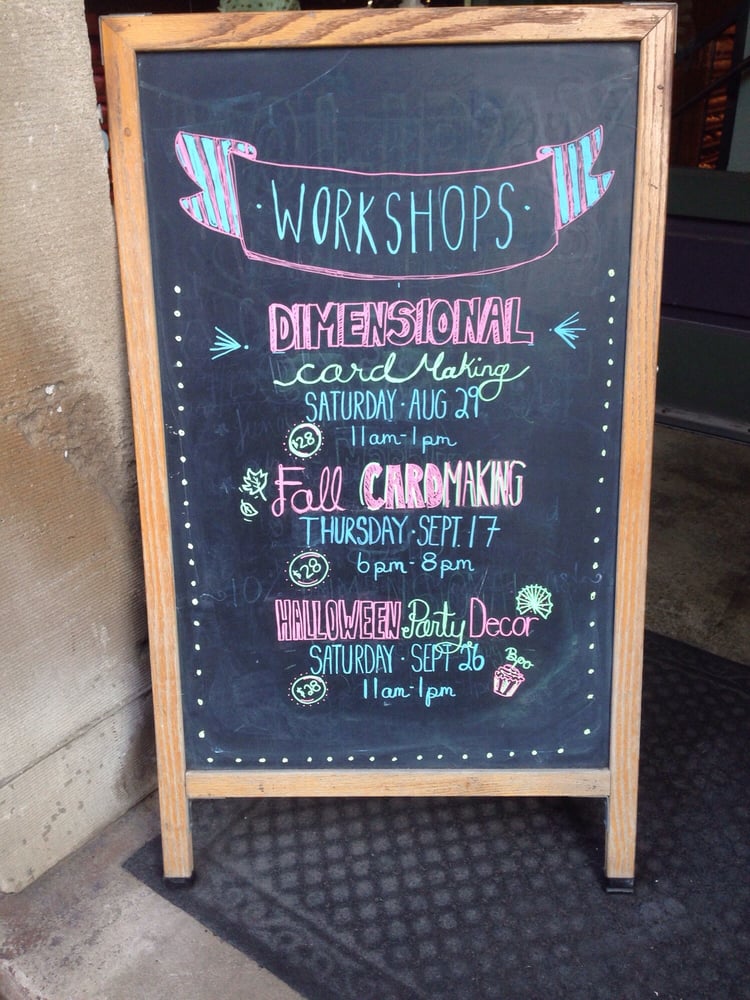 · WORKSHOPS ·
DIMENSIONAL
card Making
SATURDAY · AUG 29
$28 11am-1pm
Fall CARDMAKING
THURSDAY · SEPT. 17
$28 6pm-8pm
HALLOWEEN Party Decor
SATURDAY · SEPT 26
Boo
$28 11am-1pm